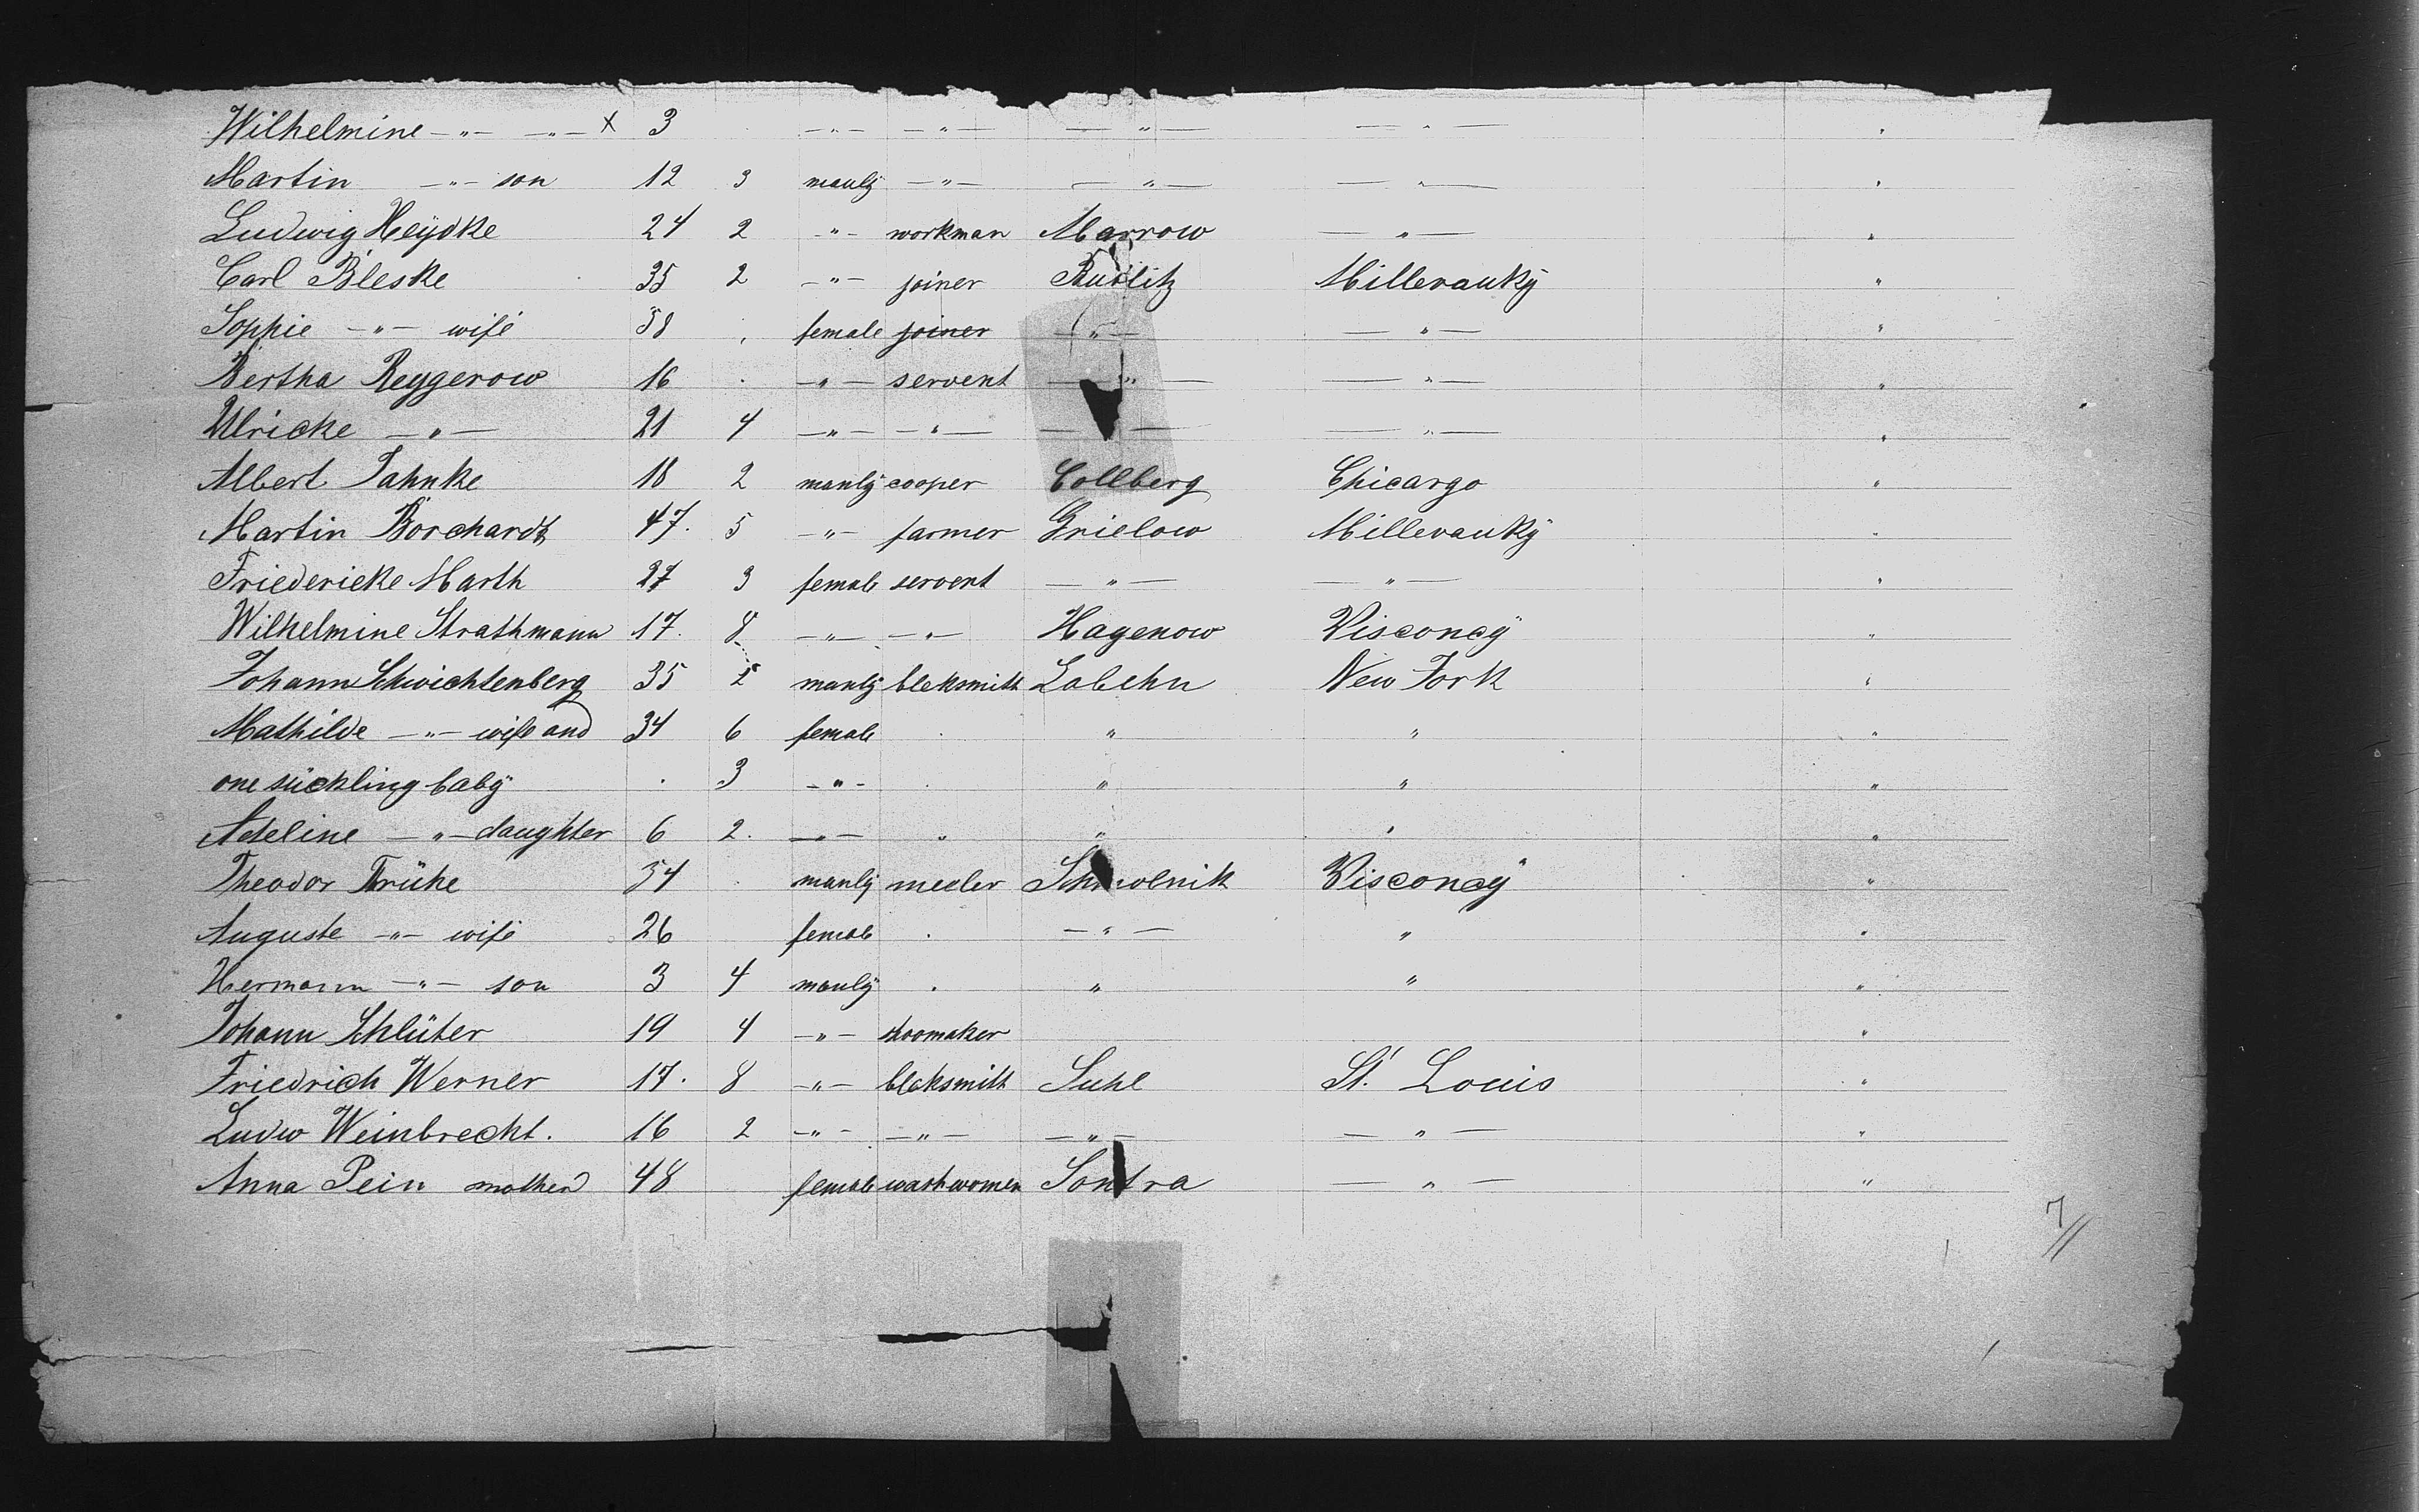 Wilhelmine -"- -"- x 3 -"- -"- -"- -"- "
Martin -"- son 12 3 manlÿ -"- -"- -"- "
Ludwig Heÿdke 24 2 -"- workman Marrow -"- "
Carl Bleske 35 2 -"- joiner Büdlitz Millevaukÿ "
Sophie -"- wife 38 . female joiner -"- -"- "
Bertha Reggerow 16 . -"- servent -"- -"- "
Ulricke -"- 21 4 -"- -"- -"- -"- "
Albert Jahnke 18 2 manlÿ cooper Collberg Chicargo "
Martin Borchardt 47. 5 -"- farmer Grielow Millevaukÿ "
Friedericke Marth 27 3 female servent -"- -"- "
Wilhelmine Strathmann 17. 8 -"- -"- Hagenow Visconcÿ "
Johann Schwichtenberg 35 2 manlÿ blcksmith Labehn New Jork "
Mathilde -"- wife and 34 6 female . " " "
one sückling babÿ . 3 -"- . " " "
Adeline -"- daughter 6 2. -"- " " " "
Theodor Frühe 34 . manlÿ meeler Schmolnik Visconcÿ "
Auguste -"- wife 26 female . -"- " "
Hermann -"- son 3 4 manlÿ . " " "
Johann Schlüter 19 4 -"- shoomaker "
Friedrich Werner 17. 8 -"- blcksmith Suhl St. Louis "
Ludw Weinbrecht. 16 2 -"- -"- -"- -"- "
Anna Pein mother 48 female washwomen Sontra -"- "
7//